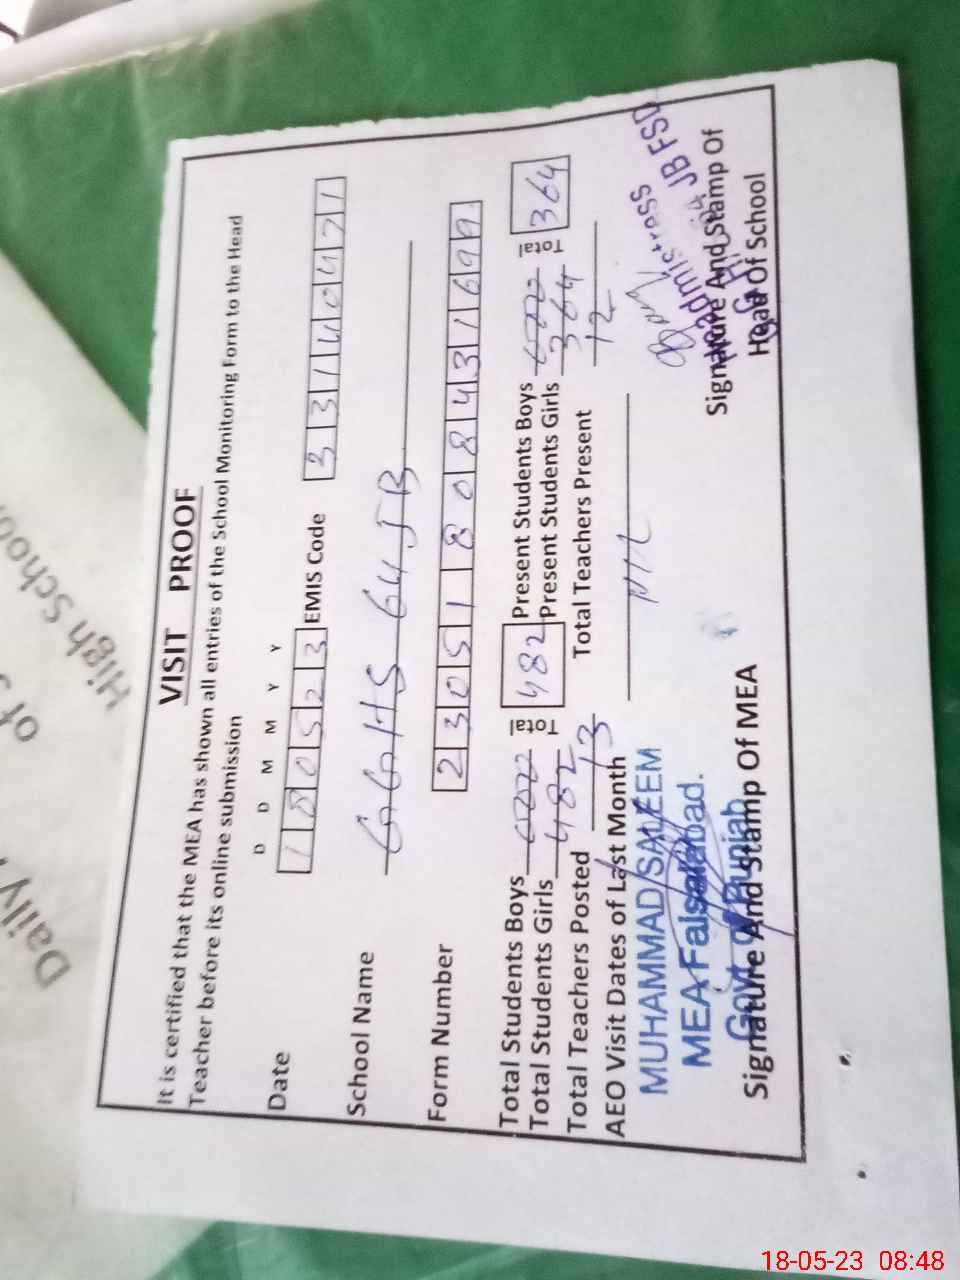 VISIT PROOF
It is certified that the MEA has shown all entries of the School Monitoring Form to the Head
Teacher before its online submission
D D M M Y Y
Date 180523 EMIS Code 33140471
School Name GGHS 64 JB
Form Number 23051808431699
Total Students Boys Total 482 Present Students Boys Total 364
Total Students Girls 482 Present Students Girls 364
Total Teachers Posted 13 Total Teachers Present 12
AEO Visit Dates of Last Month Nil
MUHAMMAD SALEEM
MEA Faisalabad.
Govt. of Punjab
Signature And Stamp Of MEA
Headmistress
JB FSD
Signature And Stamp Of
Head Of School
Daily
of S
High School
18-05-23 08:48